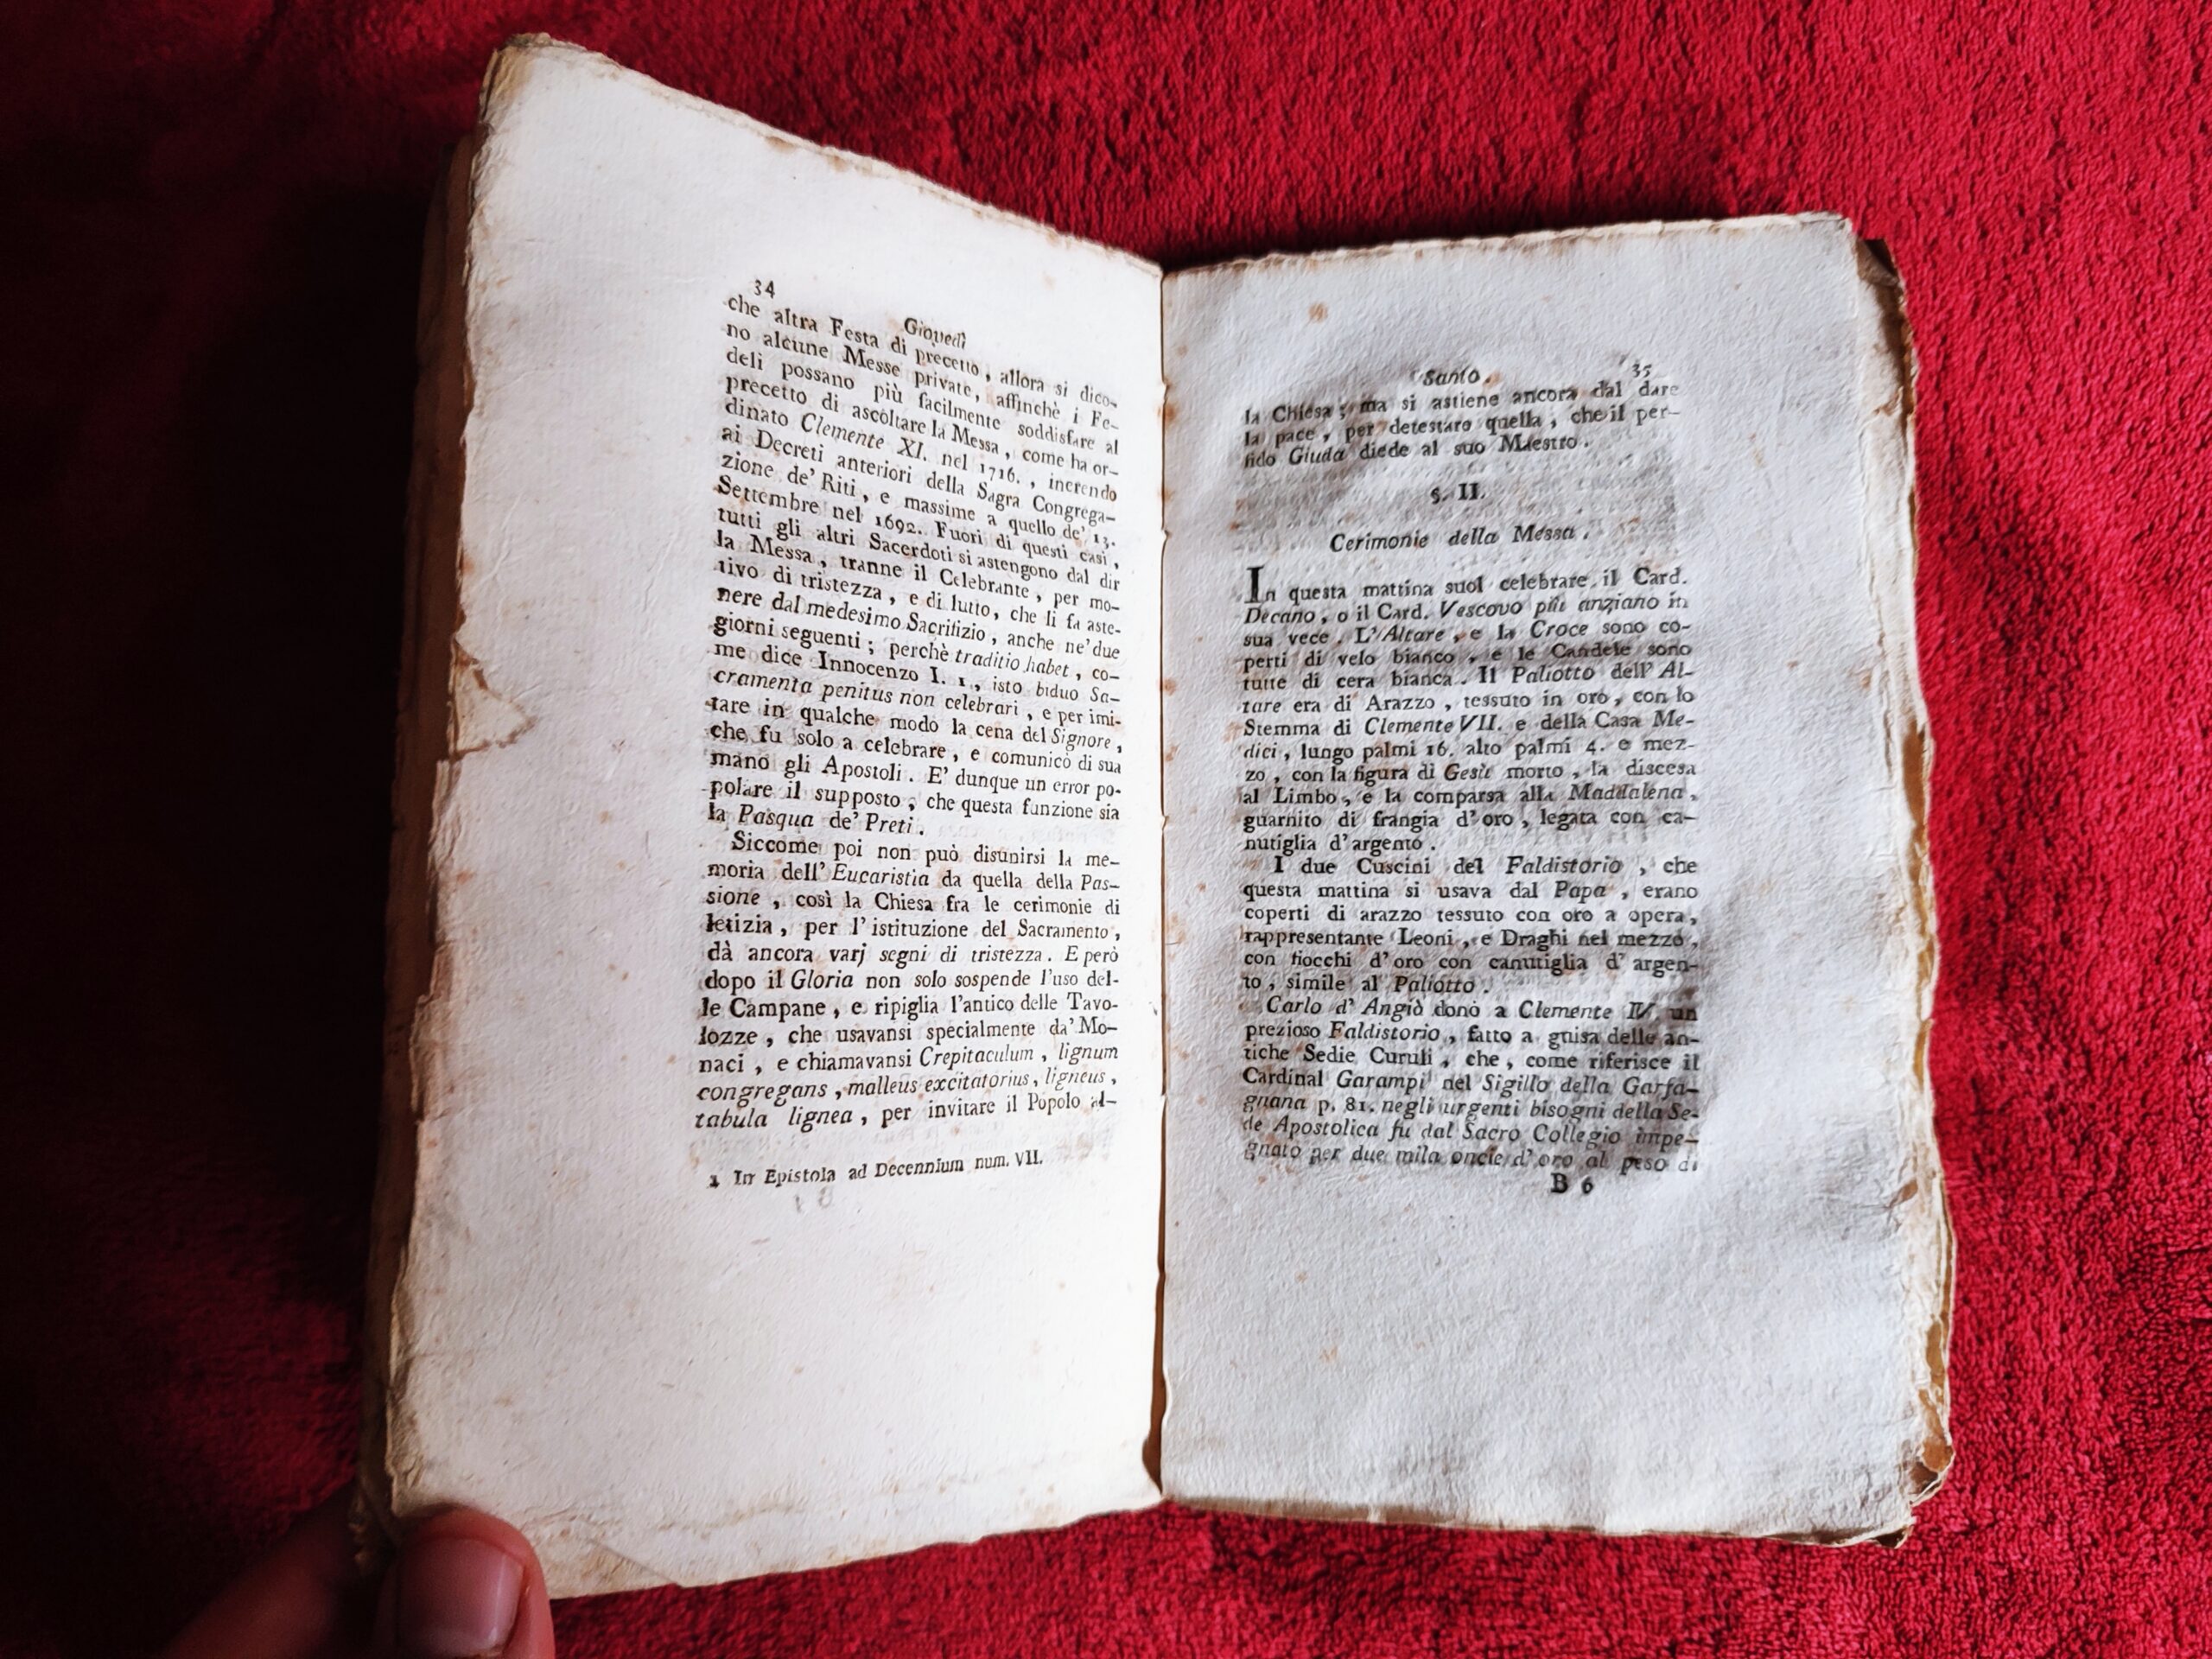 34
Giovedì
che altra Festa di precetto, allora si dico-
no alcune Messe private, affinchè i Fe-
deli possano più facilmente soddisfare al
precetto di ascoltare la Messa, come ha or-
dinato Clemente XI. nel 1716., inerendo
ai Decreti anteriori della Sagra Congrega-
zione de' Riti, e massime a quello de' 13.
Settembre nel 1692. Fuori di questi casi,
tutti gli altri Sacerdoti si astengono dal dir
la Messa, tranne il Celebrante, per mo-
tivo di tristezza, e di lutto, che li fa aste-
nere dal medesimo Sacrifizio, anche ne' due
giorni seguenti; perchè traditio habet, co-
me dice Innocenzo I. 1, isto biduo Sa-
cramenta penitus non celebrari, e per imi-
tare in qualche modo la cena del Signore,
che fu solo a celebrare, e comunicò di sua
mano gli Apostoli. E' dunque un error po-
polare il supposto, che questa funzione sia
la Pasqua de' Preti.
Siccome poi non può disunirsi la me-
moria dell' Eucaristia da quella della Pas-
sione, così la Chiesa fra le cerimonie di
letizia, per l'istituzione del Sacramento,
dà ancora varj segni di tristezza. E però
dopo il Gloria non solo sospende l'uso del-
le Campane, e ripiglia l'antico delle Tavo-
lozze, che usavansi specialmente da' Mo-
naci, e chiamavansi Crepitaculum, lignum
congregans, malleus excitatorius, ligneus,
tabula lignea, per invitare il Popolo al-
1 In Epistola ad Decennium num. VII.
Santo. 35
la Chiesa; ma si astiene ancora dal dare
la pace, per detestare quella, che il per-
fido Giuda diede al suo Maestro.
§. II.
Cerimonie della Messa.
In questa mattina suol celebrare il Card.
Decano, o il Card. Vescovo più anziano in
sua vece. L'Altare, e la Croce sono co-
perti di velo bianco, e le Candele sono
tutte di cera bianca. Il Paliotto dell' Al-
tare era di Arazzo, tessuto in oro, con lo
Stemma di Clemente VII. e della Casa Me-
dici, lungo palmi 16. alto palmi 4. e mez-
zo, con la figura di Gesù morto, la discesa
al Limbo, e la comparsa alla Maddalena,
guarnito di frangia d'oro, legata con ca-
nutiglia d'argento.
I due Cuscini del Faldistorio, che
questa mattina si usava dal Papa, erano
coperti di arazzo tessuto con oro a opera,
rappresentante Leoni, e Draghi nel mezzo,
con fiocchi d'oro con canutiglia d'argen-
to, simile al Paliotto.
Carlo d'Angiò donò a Clemente IV. un
prezioso Faldistorio, fatto a guisa delle an-
tiche Sedie Curuli, che, come riferisce il
Cardinal Garampi nel Sigillo della Garfa-
gnana p. 81. negli urgenti bisogni della Se-
de Apostolica fu dal Sacro Collegio impe-
gnato per due mila oncie d'oro al peso di
B 6